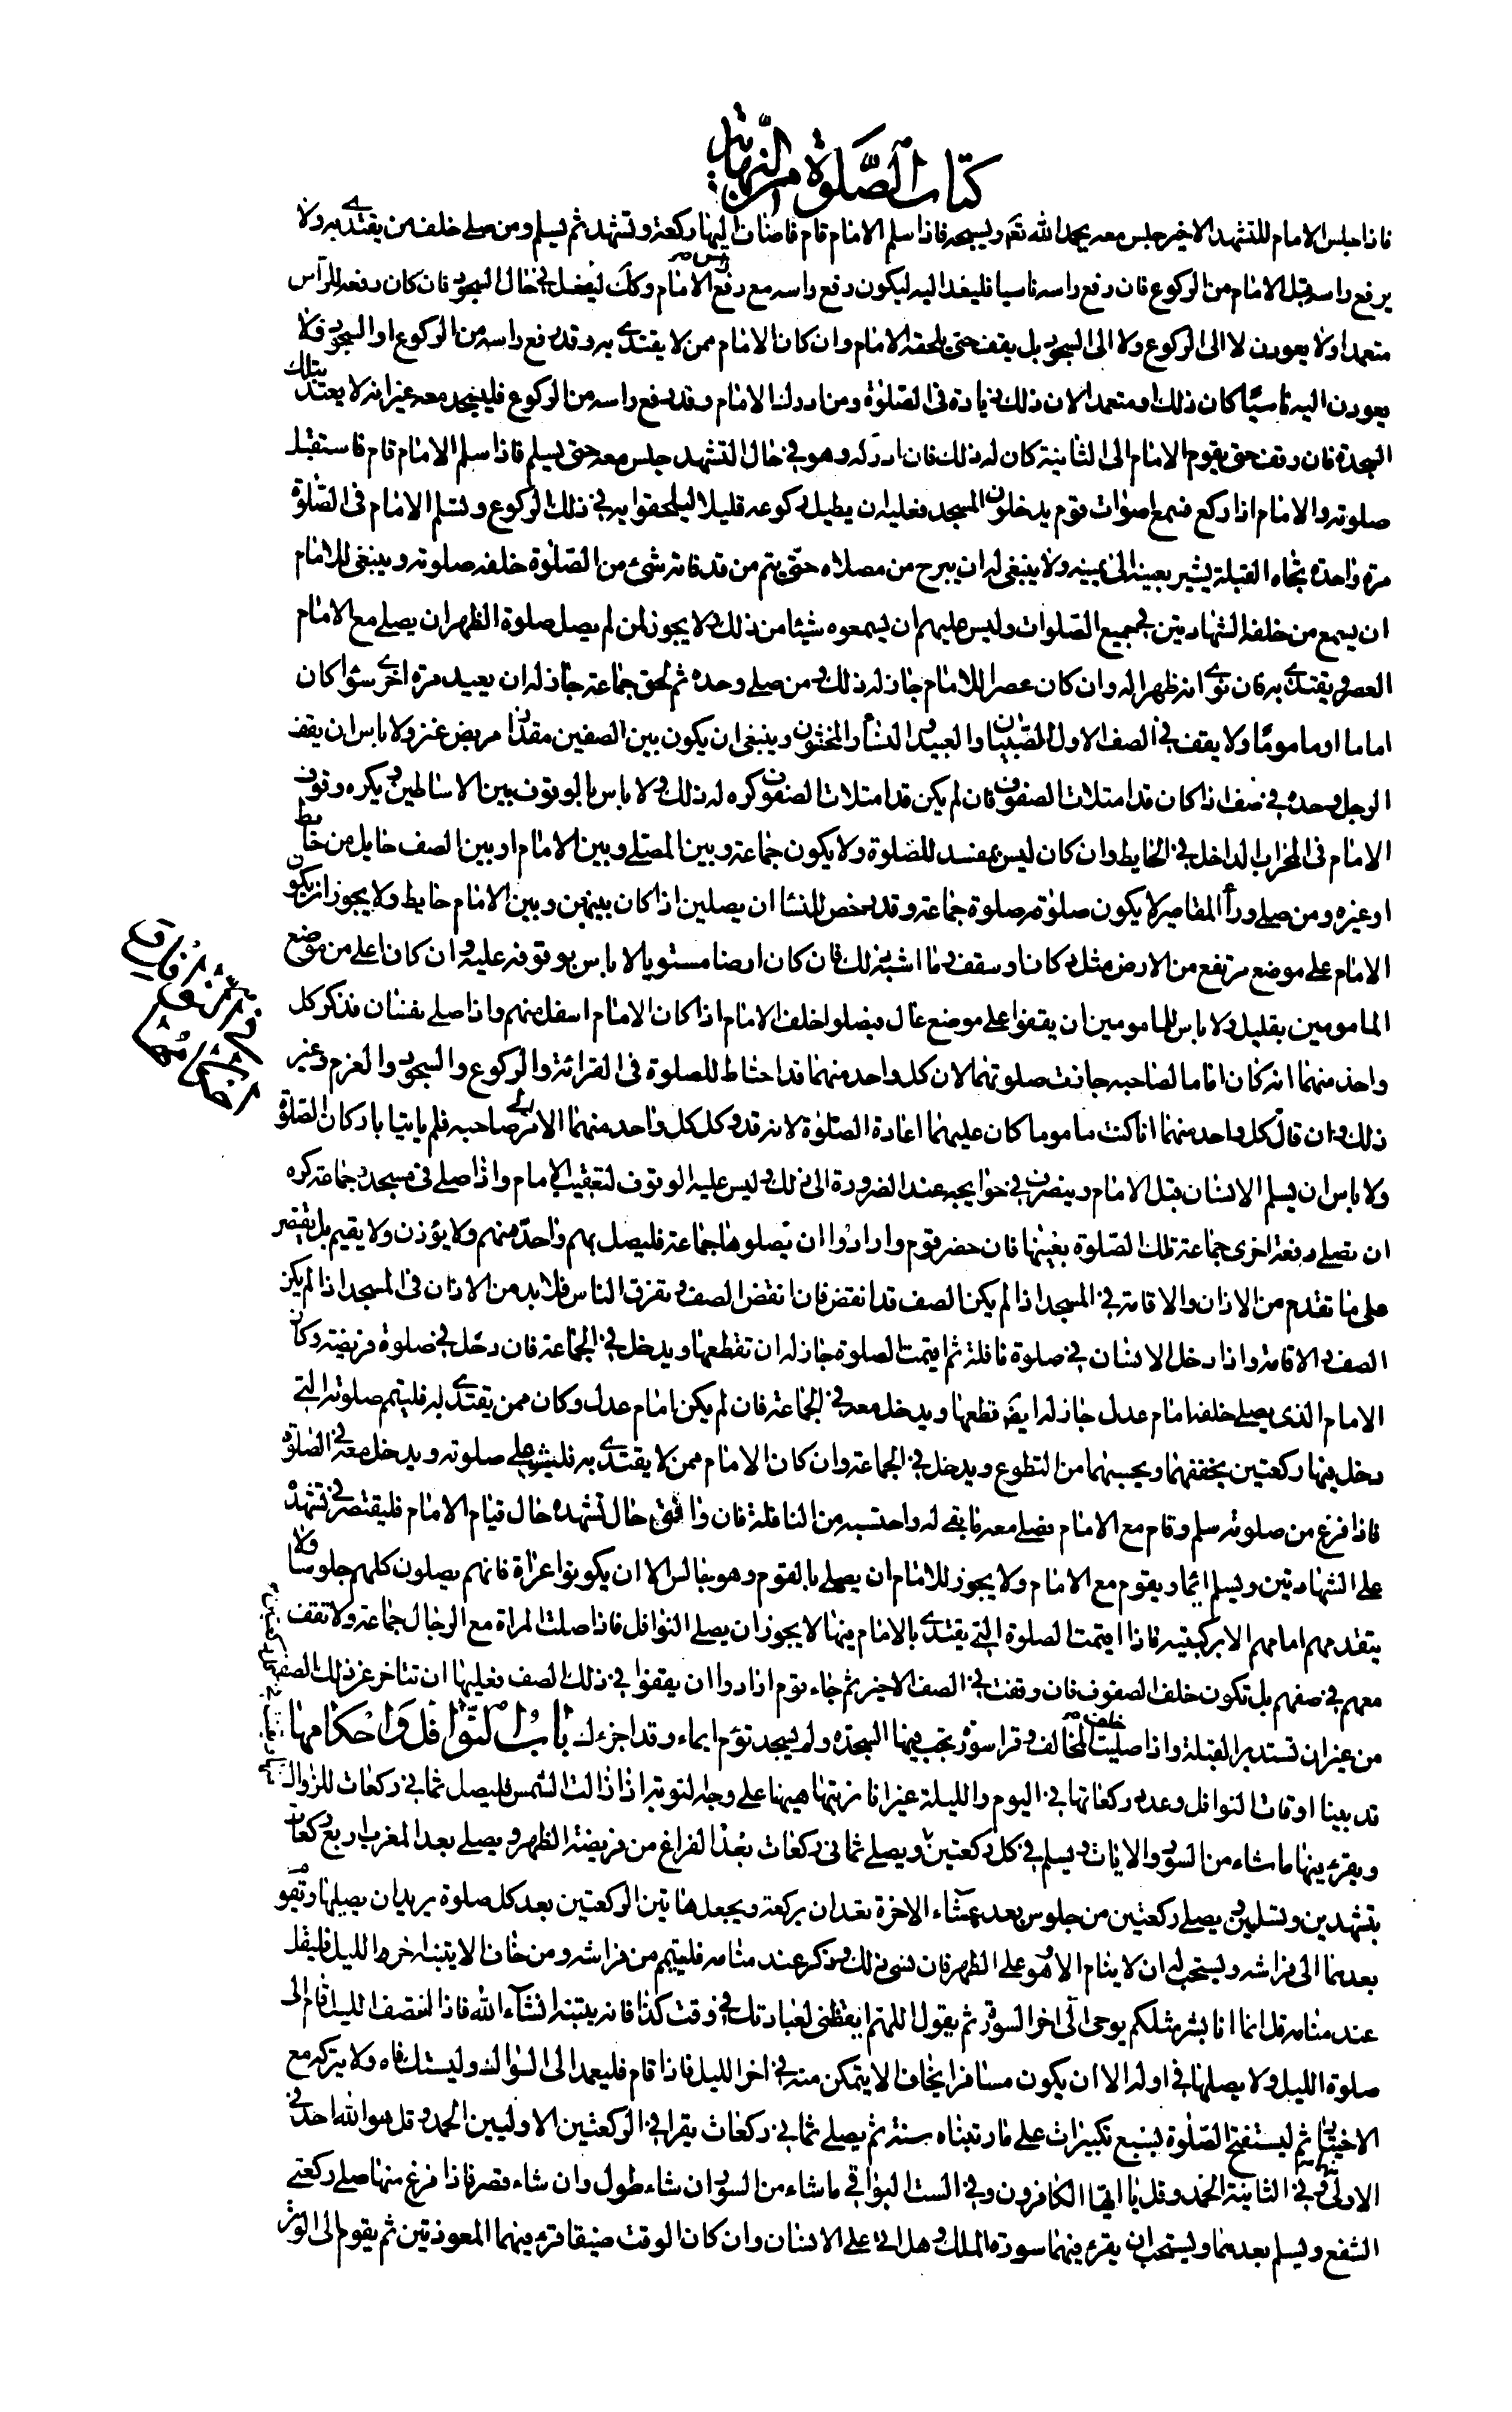 كتاب الصلوة من النهاية
فاذا جلس الامام للتشهد الاخير جلس معه يحمد الله تعم ويسبحه فاذا سلم الامام قام فاضاف اليها ركعة وتشهد ثم يسلم ومن صلى خلف من يقتدى به ولا
يرفع راسه قبل الامام من الركوع فان رفع راسه ناسيا فليعد اليه ليكون رفع راسه مع رفع الامام وكك ليفعل في حال السجود فان كان رفعه للراس
متعمدا ولا يعودن لا الى الركوع ولا الى السجود بل يقف حتى يلحقه الامام وان كان الامام ممن لا يقتدى به وقد رفع راسه من الركوع او السجود فلا
يعودن اليه ناسيا كان ذلك او متعمدا لان ذلك زيادة في الصلوة ومن ادرك الامام وقد رفع راسه من الركوع فليسجد معه غير انه لا يعتد بتلك
السجدة فان وقف حتى يقوم الامام الى الثانية كان له ذلك فان ادركه وهو في حال التشهد جلس معه حتى يسلم فاذا سلم الامام قام فاستقبل
صلوته والامام اذا ركع فسمع اصوات قوم يدخلون المسجد فعليه ان يطيل ركوعه قليلا ليلحقوا به في ذلك الركوع ويسلم الامام في الصلوة
مرة واحدة تجاه القبلة يشير بعينه الى يمينه ولا ينبغى له ان يبرح من مصلاه حتى يتم من قد فاته شئ من الصلوة خلفه صلوته وينبغى للامام
ان يسمع من خلفه الشهادتين في جميع الصلوات وليس عليهم ان يسمعوه شيئا من ذلك ولا يجوز لمن لم يصل صلوة الظهر ان يصلى مع الامام
العصر ويقتدى به فان نوى انه ظهر له وان كان عصرا للامام جاز له ذلك ومن صلى وحده ثم لحق جماعة جاز له ان يعيد مرة اخرى سواء كان
اماما او ماموما ولا يقف في الصف الاول الصبيان والعبيد والنساء والمخنثون وينبغى ان يكون بين الصفين مقدار مربض عنز ولا باس ان يقف
الرجل وحده في صف اذا كان قد امتلات الصفوف فان لم يكن قد امتلات الصفوف كره له ذلك ولا باس بالوقوف بين الاساطين ويكره وقوف
الامام في المحراب الداخل في الحايط وان كان ليس بمفسد للصلوة ولا يكون جماعة وبين المصلى وبين الامام او بين الصف حايل من حايط
او غيره ومن صلى وراء المقاصير لا يكون صلوته صلوة جماعة وقد رخص للنساء ان يصلين اذا كان بينهن وبين الامام حايط ولا يجوز ان يكون
الامام على موضع مرتفع من الارض مثل دكان او سقف وما اشبه ذلك فان كان ارضا مستويا لا باس بوقوفه عليه وان كان اعلى من موضع
المامومين بقليل ولا باس للمامومين ان يقفوا على موضع عال فيصلوا خلف الامام اذا كان الامام اسفل منهم واذا صلى نفسان فذكر كل
واحد منهما انه كان اماما لصاحبه جازت صلوتهما لان كل واحد منهما قد احتاط للصلوة في القرائة والركوع والسجود والعزم وغير
ذلك وان قال كل واحد منهما انا كنت ماموما كان عليهما اعادة الصلوة لانه قد وكل كل واحد منهما الامر الى صاحبه فلم ياتيا باركان الصلوة
ولا باس ان يسلم الانسان قبل الامام وينصرف في حوايجه عند الضرورة الى ذلك وليس عليه الوقوف لتعقيب الامام واذا صلى في مسجد جماعة كره
ان يصلى دفعة اخرى جماعة تلك الصلوة بعينها فان حضر قوم وارادوا ان يصلوها جماعة فليصل بهم واحد منهم ولا يؤذن ولا يقيم بل يقتصر
على ما تقدم من الاذان والاقامة في المسجد اذا لم يكن الصف قد انفض فان انفض الصف وتفرق الناس فلا بد من الاذان في المسجد اذا لم يكن
الصف والاقامة واذا دخل الانسان في صلوة نافلة ثم اقيمت الصلوة جاز له ان تقطعها ويدخل في الجماعة فان دخل في صلوة فريضة وكان
الامام الذى يصلى خلفه امام عدل جاز له ايض قطعها ويدخل معه في الجماعة فان لم يكن امام عدل وكان ممن يقتدى به فليتم صلوته التى
دخل فيها ركعتين يخففهما ويحسبهما من التطوع ويدخل في الجماعة وان كان الامام ممن لا يقتدى به فليبن على صلوته ويدخل معه في الصلوة
فاذا فرغ من صلوته سلم وقام مع الامام فصلى معه ما بقى له واحتسبه من النافلة فان وافق حال تشهده حال قيام الامام فليقتصر في تشهده
على الشهادتين ويسلم ايماء ويقوم مع الامام ولا يجوز للامام ان يصلى بالقوم وهو جالس الا ان يكونوا عراة فانهم يصلون كلهم جلوسا ولا
يتقدمهم امامهم الا بركبتيه فاذا اقيمت الصلوة التى يقتدى بالامام فيها لا يجوز ان يصلى النوافل فاذا صلت المراة مع الرجال جماعة ولا تقف
معهم في صفهم بل تكون خلف الصفوف فان وقفت في الصف الاخير ثم جاء قوم ارادوا ان يقفوا في ذلك الصف فعليها ان تتاخر عن ذلك الصف
من غير ان تستدبر القبلة واذا صليت خلف المخالف وقرا سورة تجب فيها السجدة ولم يسجد توم ايماء وقد اجزءك باب النوافل واحكامها
قد بينا اوقات النوافل وعدد ركعاتها في اليوم والليلة غير انا نرتبها هيهنا على وجه لتوتر اذا زالت الشمس فليصل ثمانى ركعات للزوال
ويقرء فيها ما شاء من السور والايات ويسلم في كل ركعتين ويصلى ثمانى ركعات بعد الفراغ من فريضة الظهر ويصلى بعد المغرب اربع ركعات
بتشهدين وتسليمين ويصلى ركعتين من جلوس بعد عشاء الاخرة تعدان بركعة ويجعل هاتين الركعتين بعد كل صلوة يريد ان يصليها ويقوم
بعدهما الى فراشه ويستحب له ان لا ينام الا وهو على الطهر فان نسى ذلك وذكر عند منامه فليتيمم من فراشه ومن خاف الا ينتبه اخر الليل فليقل
عند منامه قل انما انا بشر مثلكم يوحى الى اخر السورة ثم يقول اللهم ايقظنى لعبادتك في وقت كذا فانه ينتبه انشاء الله فاذا انتصف الليل قام الى
صلوة الليل ولا يصليها في اوله الا ان يكون مسافرا يخاف الا يتمكن منه في اخر الليل فاذا قام فليعمد الى السواك وليستك فاه ولا يتركه مع
الاختيار ثم ليستفتح الصلوة بسبع تكبيرات على ما رتبناه سنة ثم يصلى ثمانى ركعات يقرا في الركعتين الاوليين الحمد وقل هو الله احد في
الاولى وفي الثانية الحمد وقل يا ايها الكافرون وفي الست البواقى ما شاء من السور ان شاء طول وان شاء قصر فاذا فرغ منها صلى ركعتى
الشفع ويسلم بعدهما ويستحب ان يقرء فيهما سورة الملك وهل اتى على الانسان وان كان الوقت ضيقا قرء فيهما المعوذتين ثم يقوم الى الوتر